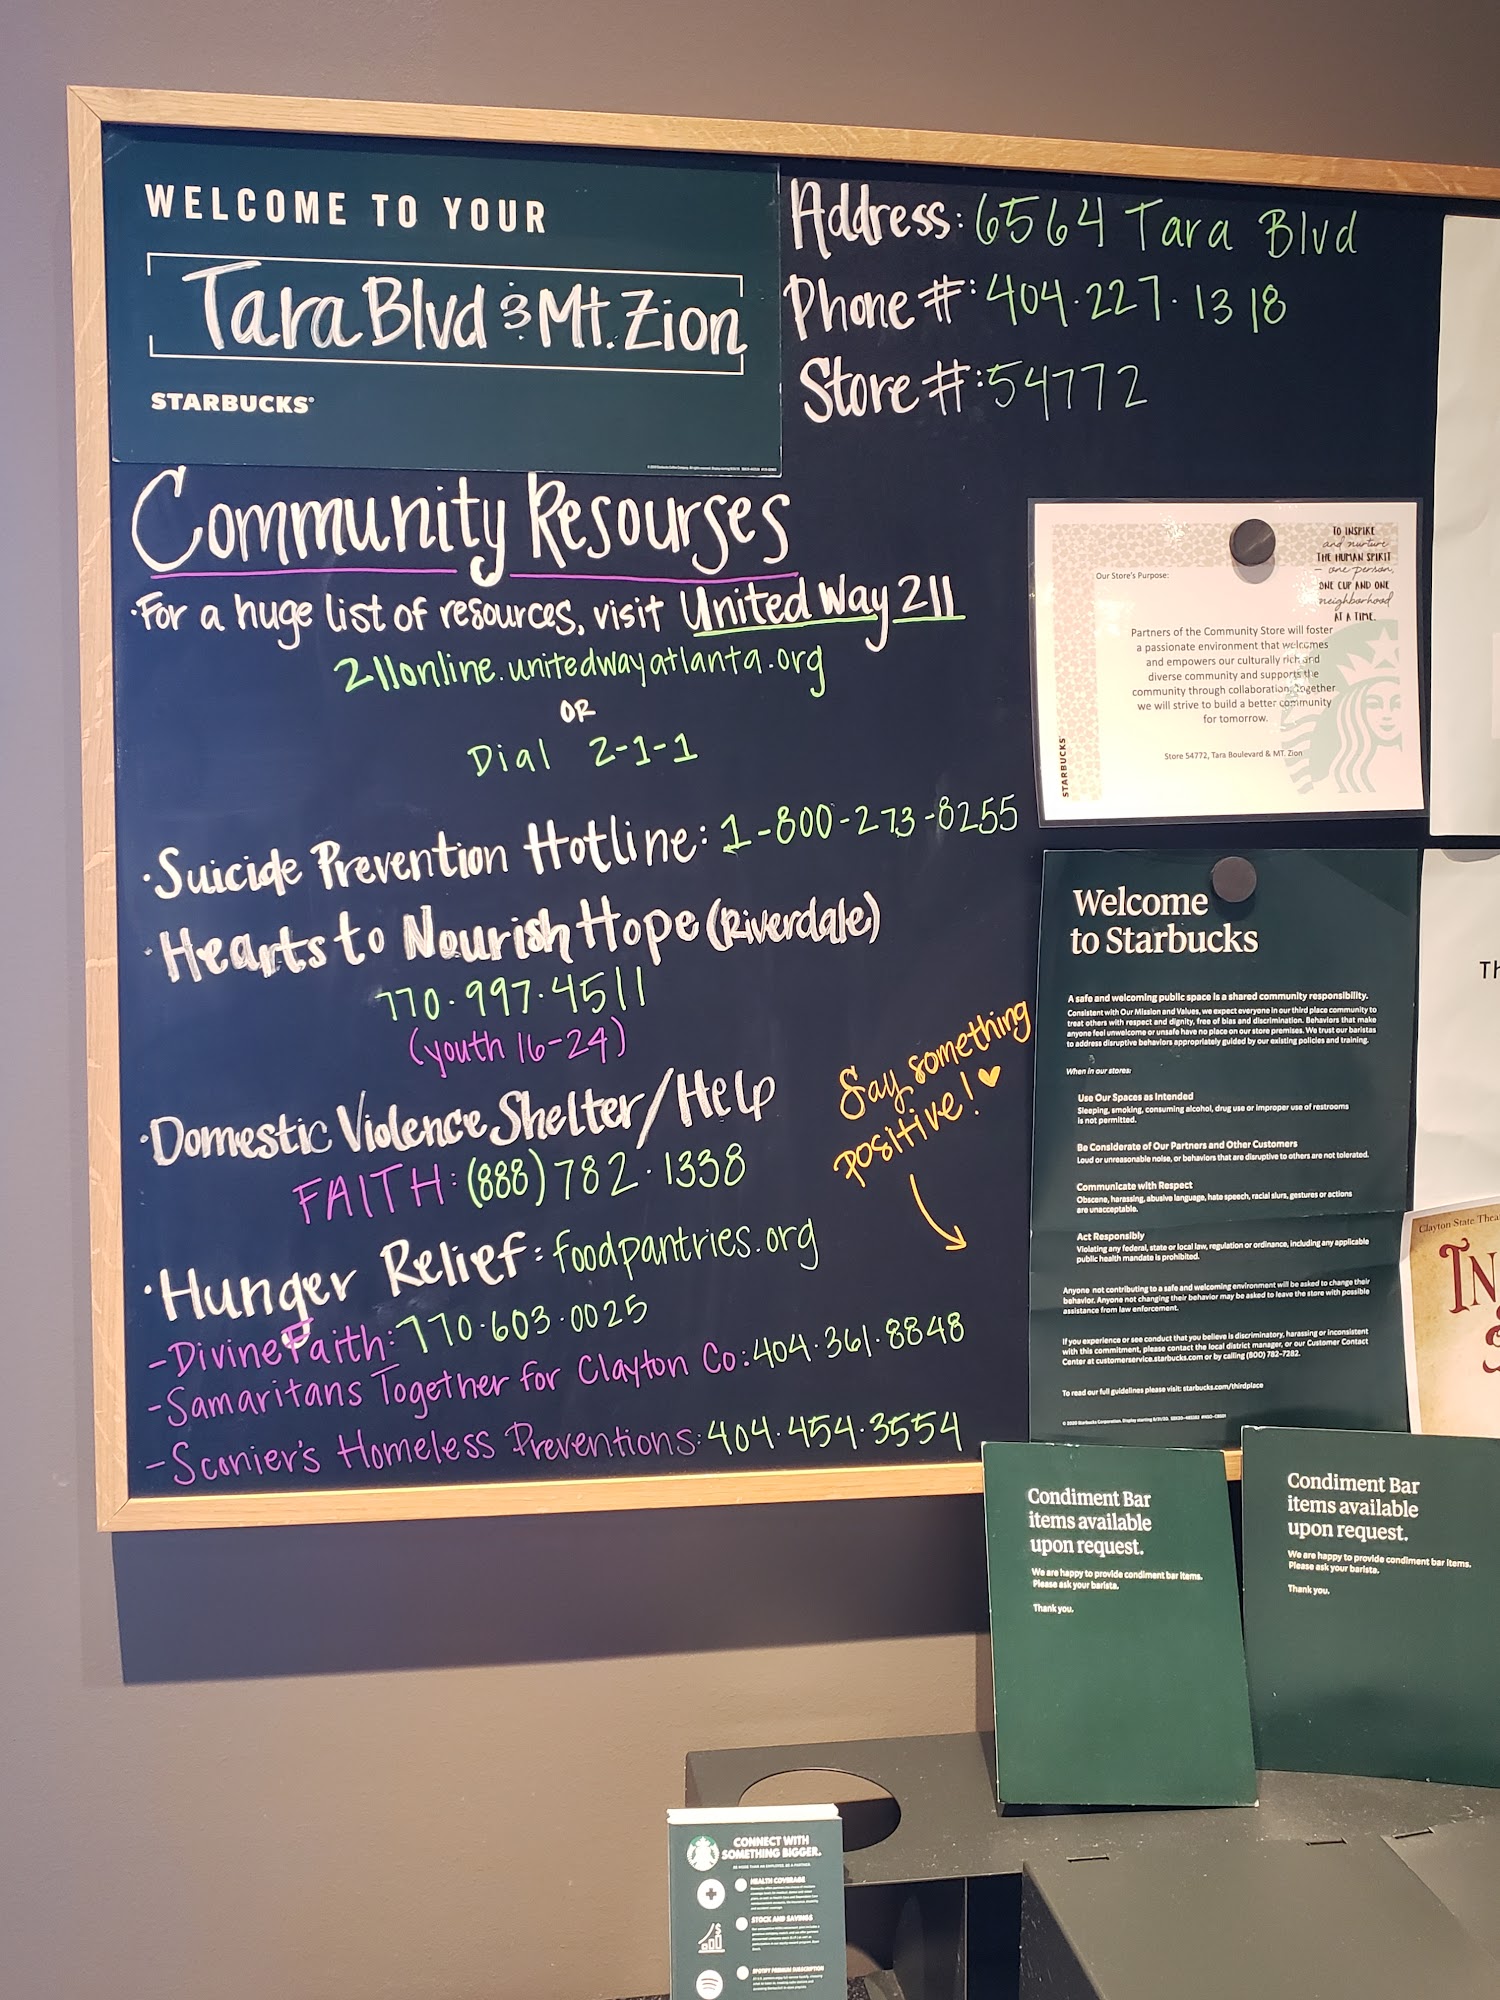 WELCOME TO YOUR
Tara Blvd & Mt. Zion
STARBUCKS®
Address: 6564 Tara Blvd
Phone #: 404·227·1318
Store #: 54772
Community Resourses
·For a huge list of resources, visit United Way 211
211online.unitedwayatlanta.org
OR
Dial 2-1-1
·Suicide Prevention Hotline: 1-800-273-8255
·Hearts to Nourish Hope (Riverdale)
770·997·4511
(youth 16-24)
·Domestic Violence Shelter/Help
FAITH: (888) 782·1338
·Hunger Relief: foodpantries.org
-Divine Faith: 770·603·0025
-Samaritans Together for Clayton Co: 404·361·8848
-Sconier's Homeless Preventions: 404·454·3554
Say something
positive!
TO INSPIRE
and nurture
THE HUMAN SPIRIT
– one person,
ONE CUP AND ONE
neighborhood
AT A TIME.
Our Store's Purpose:
Partners of the Community Store will foster
a passionate environment that welcomes
and empowers our culturally rich and
diverse community and supports the
community through collaboration. Together
we will strive to build a better community
for tomorrow.
Store 54772, Tara Boulevard & MT. Zion
STARBUCKS
Welcome
to Starbucks
A safe and welcoming public space is a shared community responsibility.
Consistent with Our Mission and Values, we expect everyone in our third place community to
treat others with respect and dignity, free of bias and discrimination. Behaviors that make
anyone feel unwelcome or unsafe have no place on our store premises. We trust our baristas
to address disruptive behaviors appropriately guided by our existing policies and training.
When in our stores:
Use Our Spaces as Intended
Sleeping, smoking, consuming alcohol, drug use or improper use of restrooms
is not permitted.
Be Considerate of Our Partners and Other Customers
Loud or unreasonable noise, or behaviors that are disruptive to others are not tolerated.
Communicate with Respect
Obscene, harassing, abusive language, hate speech, racial slurs, gestures or actions
are unacceptable.
Act Responsibly
Violating any federal, state or local law, regulation or ordinance, including any applicable
public health mandate is prohibited.
Anyone not contributing to a safe and welcoming environment will be asked to change their
behavior. Anyone not changing their behavior may be asked to leave the store with possible
assistance from law enforcement.
If you experience or see conduct that you believe is discriminatory, harassing or inconsistent
with this commitment, please contact the local district manager, or our Customer Contact
Center at customerservice.starbucks.com or by calling (800) 782-7282.
To read our full guidelines please visit: starbucks.com/thirdplace
Th
Clayton State Thea
IN
Condiment Bar
items available
upon request.
We are happy to provide condiment bar items.
Please ask your barista.
Thank you.
Condiment Bar
items available
upon request.
We are happy to provide condiment bar items.
Please ask your barista.
Thank you.
CONNECT WITH
SOMETHING BIGGER.
BE MORE THAN AN EMPLOYEE. BE A PARTNER.
HEALTH COVERAGE
STOCK AND SAVINGS
SPOTIFY PREMIUM SUBSCRIPTION